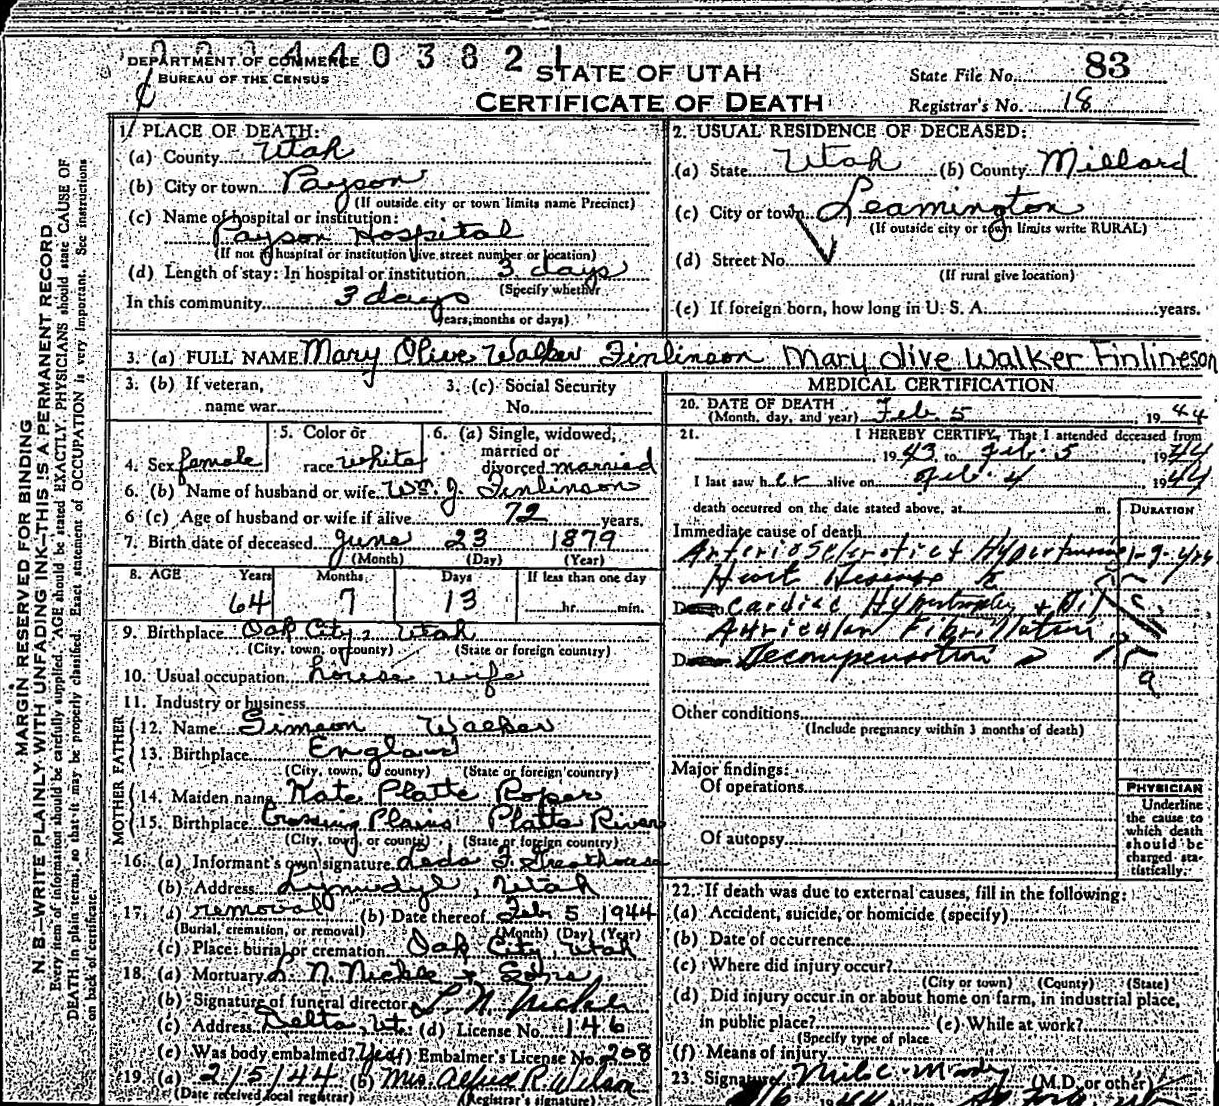 DEPARTMENT OF COMMERCE
BUREAU OF THE CENSUS
STATE OF UTAH
CERTIFICATE OF DEATH
State File No. 83
Registrar's No. 18
MARGIN RESERVED FOR BINDING
N. B.—WRITE PLAINLY WITH UNFADING INK—THIS IS A PERMANENT RECORD
Every item of information should be carefully supplied. AGE should be stated EXACTLY. PHYSICIANS should state CAUSE OF
DEATH in plain terms, so that it may be properly classified. Exact statement of OCCUPATION is very important. See instructions
on back of certificate.
1. PLACE OF DEATH:
(a) County Utah
(b) City or town Payson
(If outside city or town limits name Precinct)
(c) Name of hospital or institution:
Payson Hospital
(If not in hospital or institution give street number or location)
(d) Length of stay: In hospital or institution 3 days
(Specify whether
In this community 3 days
years, months or days)
2. USUAL RESIDENCE OF DECEASED:
(a) State Utah (b) County Millard
(c) City or town Leamington
(If outside city or town limits write RURAL)
(d) Street No.
(If rural give location)
(e) If foreign born, how long in U. S. A. years.
3. (a) FULL NAME Mary Olive Walker Finlinson Mary Olive Walker Finlineson
3. (b) If veteran, name war
3. (c) Social Security No.
4. Sex female
5. Color or race white
6. (a) Single, widowed, married or divorced married
6. (b) Name of husband or wife Wm. J. Finlinson
6 (c) Age of husband or wife if alive 72 years.
7. Birth date of deceased June 23 1879
(Month) (Day) (Year)
8. AGE Years Months Days If less than one day
64 7 13 hr. min.
9. Birthplace Oak City, Utah
(City, town, or county) (State or foreign country)
10. Usual occupation house wife
11. Industry or business
FATHER
12. Name Simeon Walker
13. Birthplace England
(City, town, or county) (State or foreign country)
MOTHER
14. Maiden name Kate Platte Roper
15. Birthplace Crossing Plains Platte River
(City, town, or county) (State or foreign country)
16. (a) Informant's own signature Leda F. Greathouse
(b) Address Lynndyl, Utah
17. (a) removal (b) Date thereof Feb 5 1944
(Burial, cremation, or removal) (Month) (Day) (Year)
(c) Place: burial or cremation Oak City, Utah
18. (a) Mortuary L. N. Nickle & Sons
(b) Signature of funeral director L. N. Nickle
(c) Address Delta, Ut. (d) License No. 146
(e) Was body embalmed? Yes (f) Embalmer's License No. 208
19. (a) 2/5/44 (b) Mrs. Alfred R. Wilson
(Date received local registrar) (Registrar's signature)
MEDICAL CERTIFICATION
20. DATE OF DEATH
(Month, day, and year) Feb. 5, 1944
21. I HEREBY CERTIFY, That I attended deceased from
1943, to Feb. 5 1944
I last saw her alive on Feb. 4 1944
death occurred on the date stated above, at m.
DURATION
Immediate cause of death
Heart Disease
Cardiac Hypertrophy + Dil
Auricular Fibrillation
Decompensation
Other conditions
(Include pregnancy within 3 months of death)
Major findings:
Of operations
Of autopsy
PHYSICIAN
Underline
the cause to
which death
should be
charged sta-
tistically.
22. If death was due to external causes, fill in the following:
(a) Accident, suicide, or homicide (specify)
(b) Date of occurrence
(c) Where did injury occur?
(City or town) (County) (State)
(d) Did injury occur in or about home on farm, in industrial place,
in public place? (e) While at work?
(Specify type of place
(f) Means of injury
23. Signature (M.D. or other)